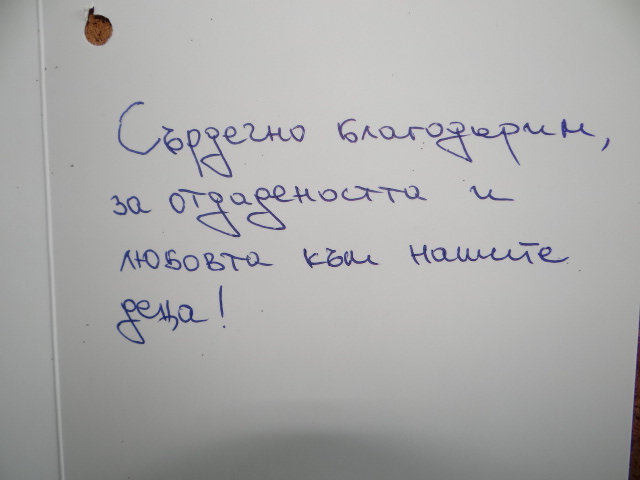 Сърдечно благодарим,
за отдадеността и
любовта към нашите
деца!